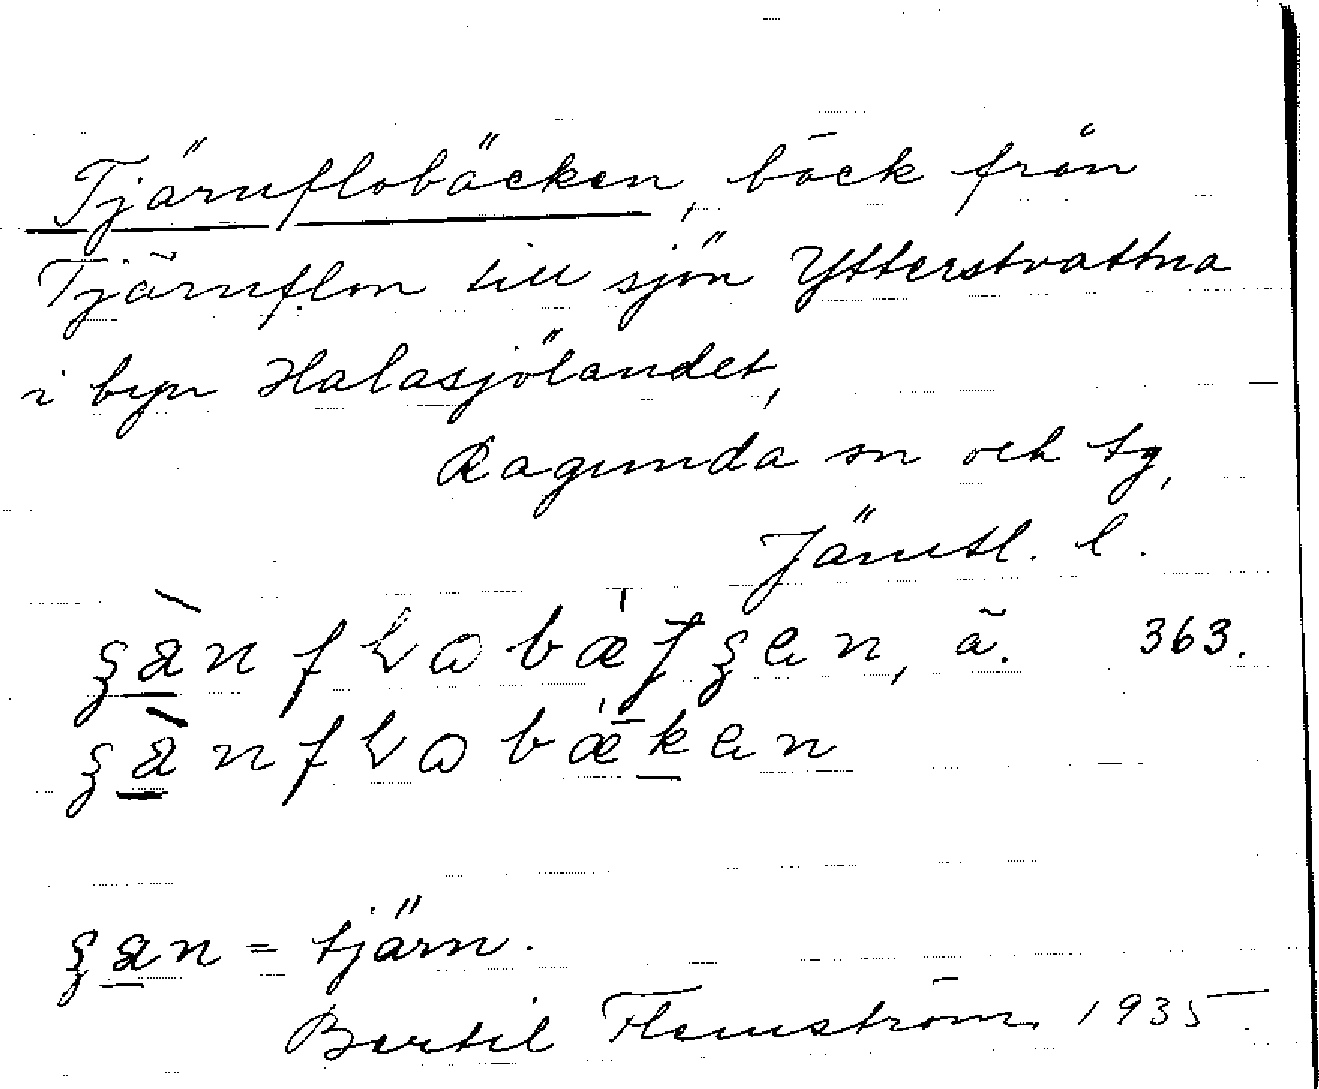 Tjärnflobäcken, bäck från
Tjärnflon till sjön Ytterstvattna
i byn Halasjölandet,
Ragunda sn och tg,
Jämtl. l.
ā. 363.
= tjärn.
Bertil Flemström 1935.